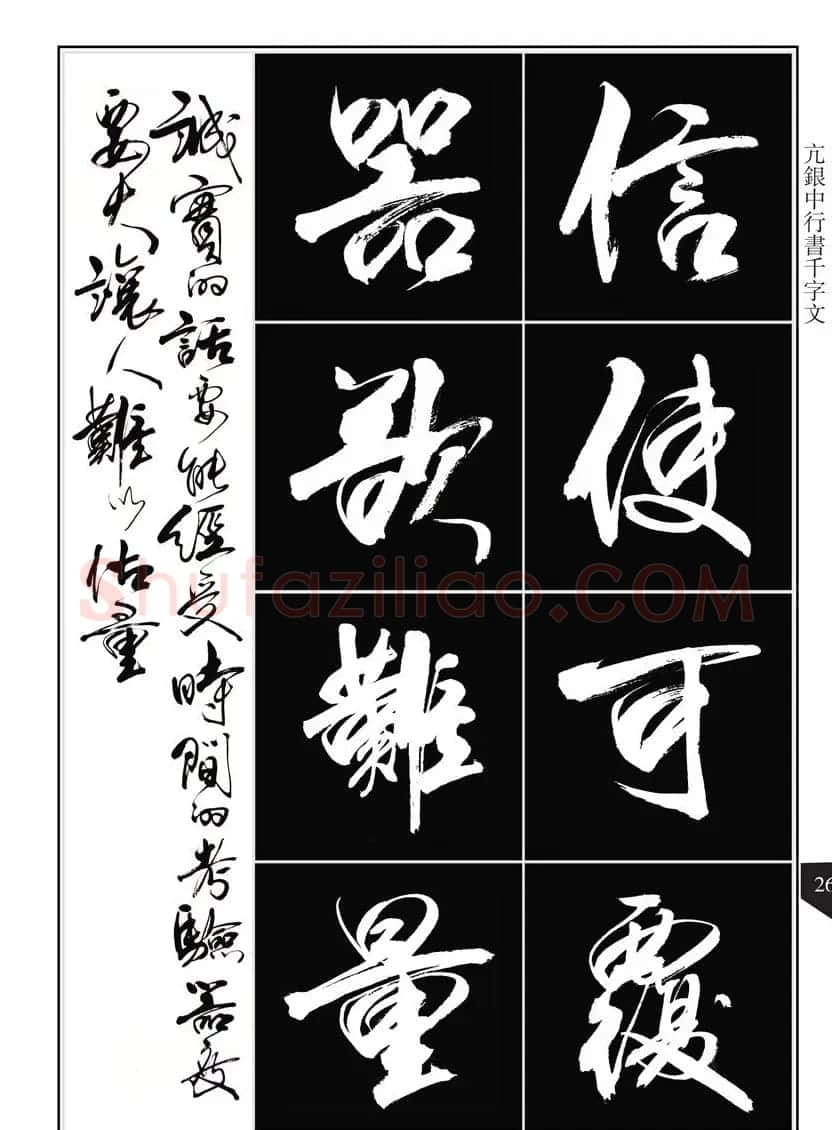 亢銀中行書千字文
信使可覆
器欲難量
誠實的話要能經受時間的考驗器度
要大讓人難以估量
26
Shufaziliao.COM